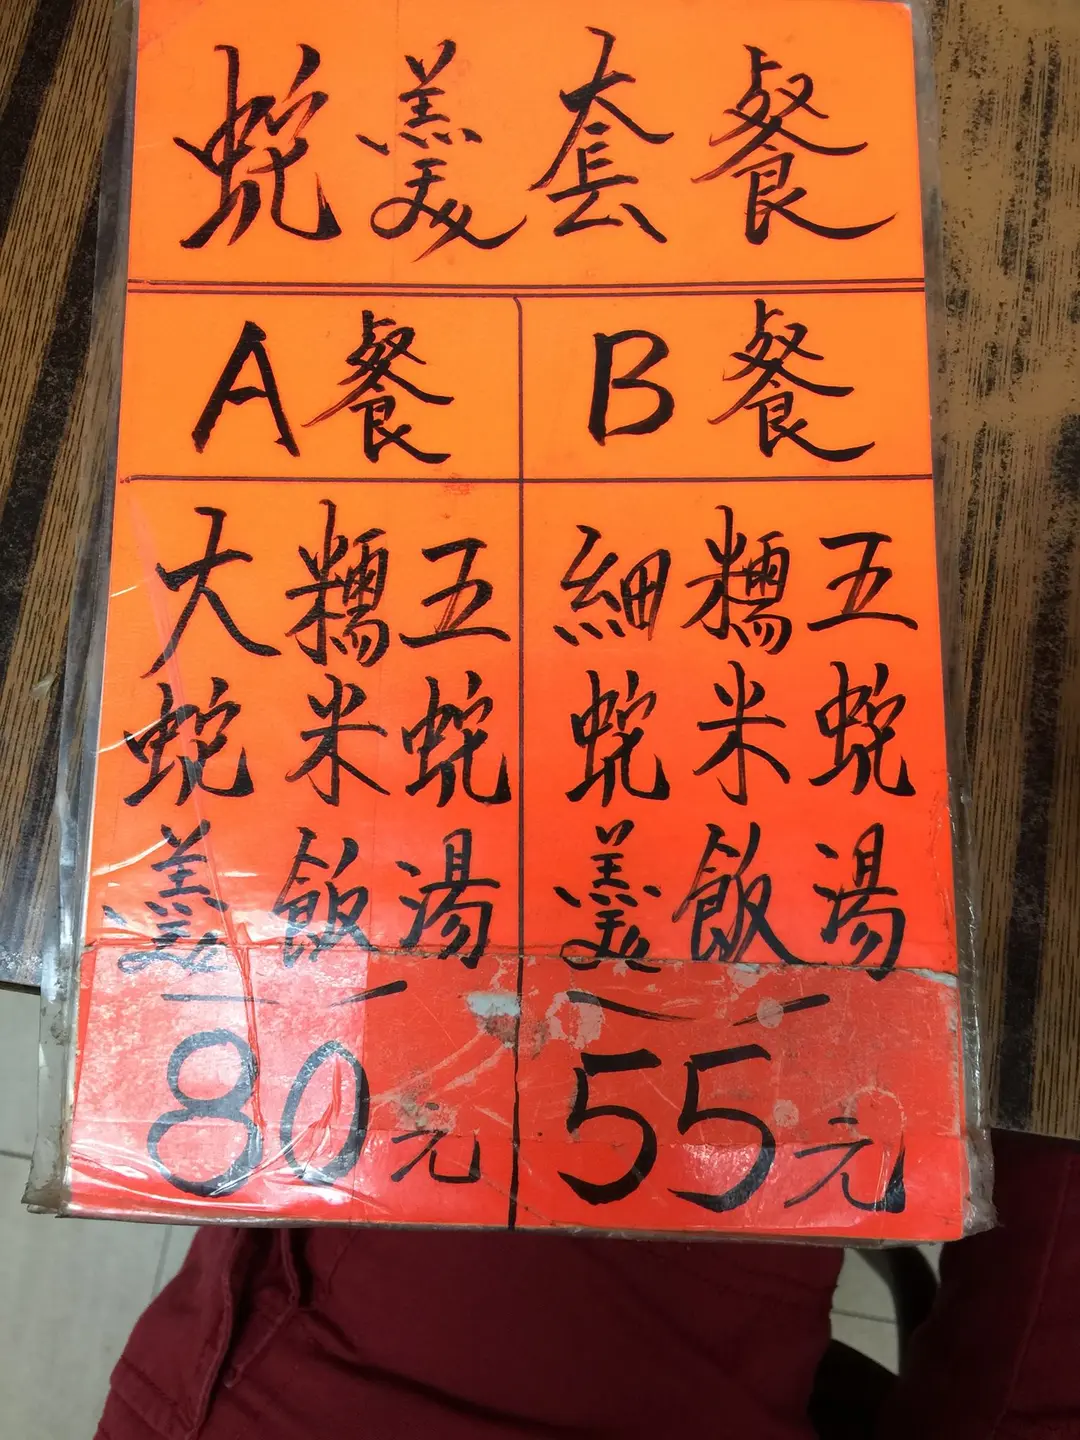 蛇羹套餐
A餐
大蛇羹
糯米飯
五蛇湯
80元
B餐
細蛇羹
糯米飯
五蛇湯
55元